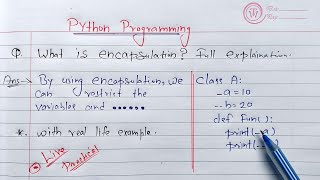 Python Programming
Q. What is encapsulation? Full explaination.
Ans→ By using encapsulation, we
can restrict the
variables and ......
* with real life example.
Live
Practical
Class A:
_a = 10
__b = 20
def func():
print(_a)
print(__